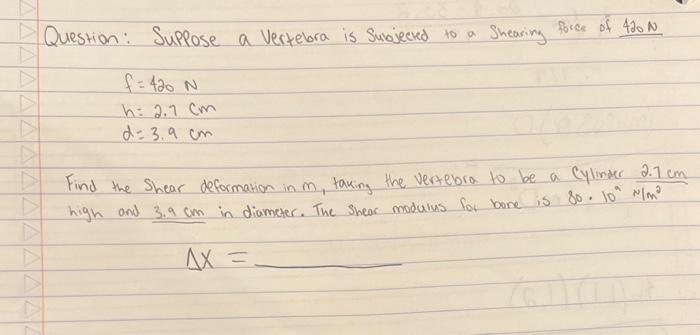 Question: Suppose a vertebra is Subjected to a Shearing force of 420 N
f = 420 N
h = 2.7 cm
d = 3.9 cm
Find the Shear deformation in m, taking the vertebra to be a Cylinder 2.7 cm
high and 3.9 cm in diameter. The Shear modulus for bone is 80 · 10⁹ N/m²
ΔX = ________